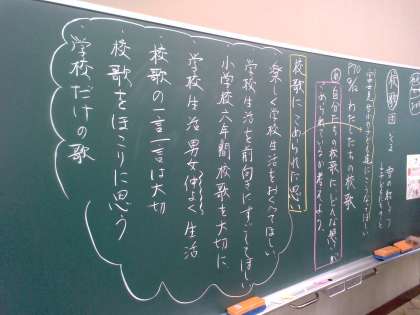 校歌
P70
9/12 わたしたちの校歌
自分たちの校歌に、どんな思いが
こめられているか考えよう。
校歌にこめられた思い
・楽しく学校生活をおくってほしい
・学校生活を前向きにすごしてほしい
・小学校六年間校歌を大切に
・学校生活 男女仲よく生活
・校歌の一言一言は大切
・校歌をほこりに思う
・学校だけの歌